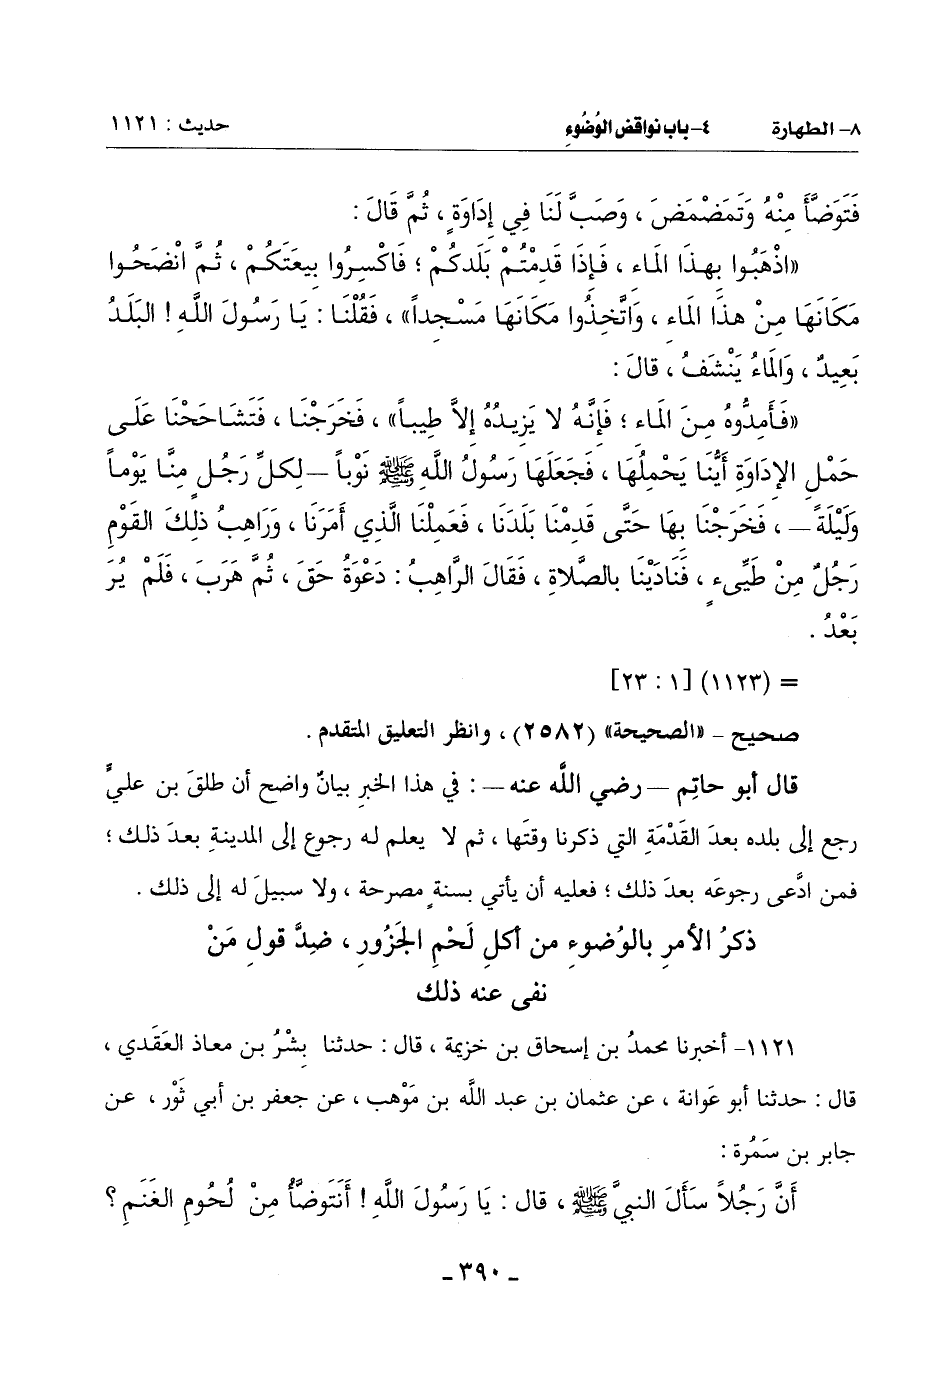 ٨- الطهارة ٤- باب نواقض الوُضُوءِ حديث : ١١٢١
فَتَوَضَّأَ مِنْهُ وَتَمَضْمَضَ ، وَصَبَّ لَنَا فِي إِدَاوَةٍ ، ثُمَّ قَالَ :
«اذْهَبُوا بِهذَا المَاءِ ، فَإِذَا قَدِمْتُمْ بَلَدَكُمْ ؛ فَاكْسِرُوا بِيعَتَكُمْ ، ثُمَّ انْضَحُوا
مَكَانَهَا مِنْ هذَا المَاءِ ، وَاتَّخِذُوا مَكَانَهَا مَسْجِداً» ، فَقُلْنَا : يَا رَسُولَ اللَّهِ ! البَلَدُ
بَعِيدٌ ، وَالمَاءُ يَنْشَفُ ، قَالَ :
«فَأَمِدُّوهُ مِنَ المَاءِ ؛ فَإِنَّهُ لا يَزِيدُهُ إِلاَّ طِيباً» ، فَخَرَجْنَا ، فَتَشَاحَحْنَا عَلَى
حَمْلِ الإِدَاوَةِ أَيُّنَا يَحْمِلُهَا ، فَجَعَلَهَا رَسُولُ اللَّهِ ﷺ نَوْباً –لِكلِّ رَجُلٍ مِنَّا يَوْماً
وَلَيْلَةً– ، فَخَرَجْنَا بِهَا حَتَّى قَدِمْنَا بَلَدَنَا ، فَعَمِلْنَا الَّذِي أَمَرَنَا ، وَرَاهِبُ ذلِكَ القَوْمِ
رَجُلٌ مِنْ طَيِّىءٍ ، فَنَادَيْنَا بِالصَّلاةِ ، فَقَالَ الرَّاهِبُ : دَعْوَةُ حَقٍّ ، ثُمَّ هَرَبَ ، فَلَمْ يُرَ
بَعْدُ .
= (١١٢٣) [١ : ٢٣]
صحيح – «الصحيحة» (٢٥٨٢) ، وانظر التعليق المتقدم .
قال أبو حاتِم – رضي اللَّه عنه – : في هذا الخبرِ بيانٌ واضح أن طلقَ بن عليٍّ
رجع إلى بلده بعدَ القَدْمَةِ التي ذكرنا وقتَها ، ثم لا يعلم له رجوع إلى المدينةِ بعدَ ذلك ؛
فمن ادَّعى رجوعَه بعدَ ذلك ؛ فعليه أن يأتي بسنةٍ مصرحة ، ولا سبيلَ له إلى ذلك .
ذكرُ الأمرِ بالوُضوءِ من أكلِ لَحْمِ الجَزُورِ ، ضِدَّ قولِ مَنْ
نفى عنه ذلك
١١٢١– أخبرنا محمدُ بن إسحاق بن خزيمة ، قال : حدثنا بِشْرُ بن معاذ العَقَدي ،
قال : حدثنا أبو عَوانة ، عن عثمان بن عبد اللَّه بن مَوْهب ، عن جعفر بن أبي ثَوْر ، عن
جابر بن سَمُرة :
أَنَّ رَجُلاً سَأَلَ النبيَّ ﷺ ، قال : يَا رَسُولَ اللَّهِ ! أَنَتَوَضَّأُ مِنْ لُحُومِ الغَنَمِ ؟
- ٣٩٠ -